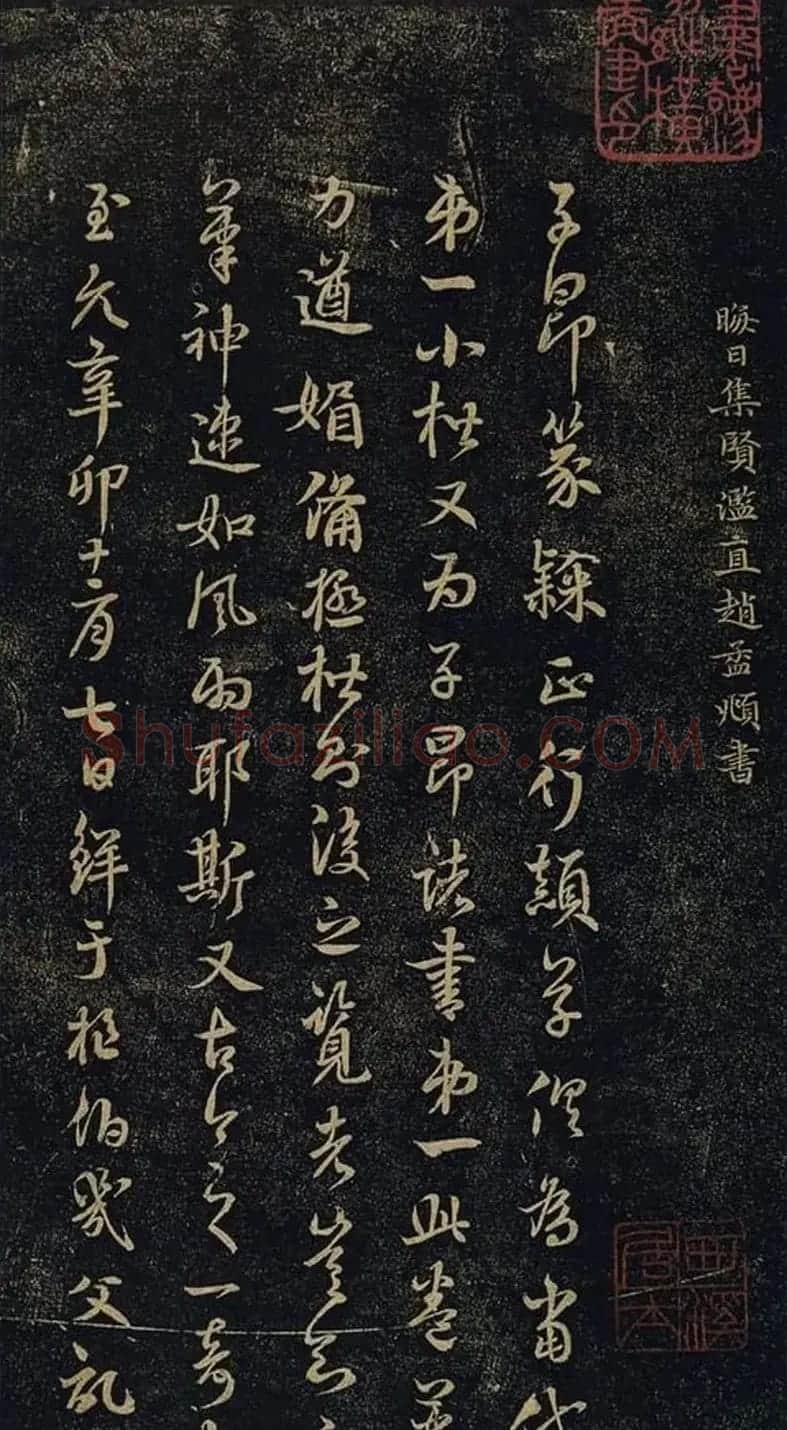 晦日集賢濫直趙孟頫書
子昂篆隸正行顛草俱為當代
第一小楷又为子昂諸書第一此卷筆
力遒媚備極楷則後之覽者豈知
筆神速如風雨耶斯又古今之一奇
至元辛卯十二月七日鮮于枢伯幾父記
Shufaziliao.COM